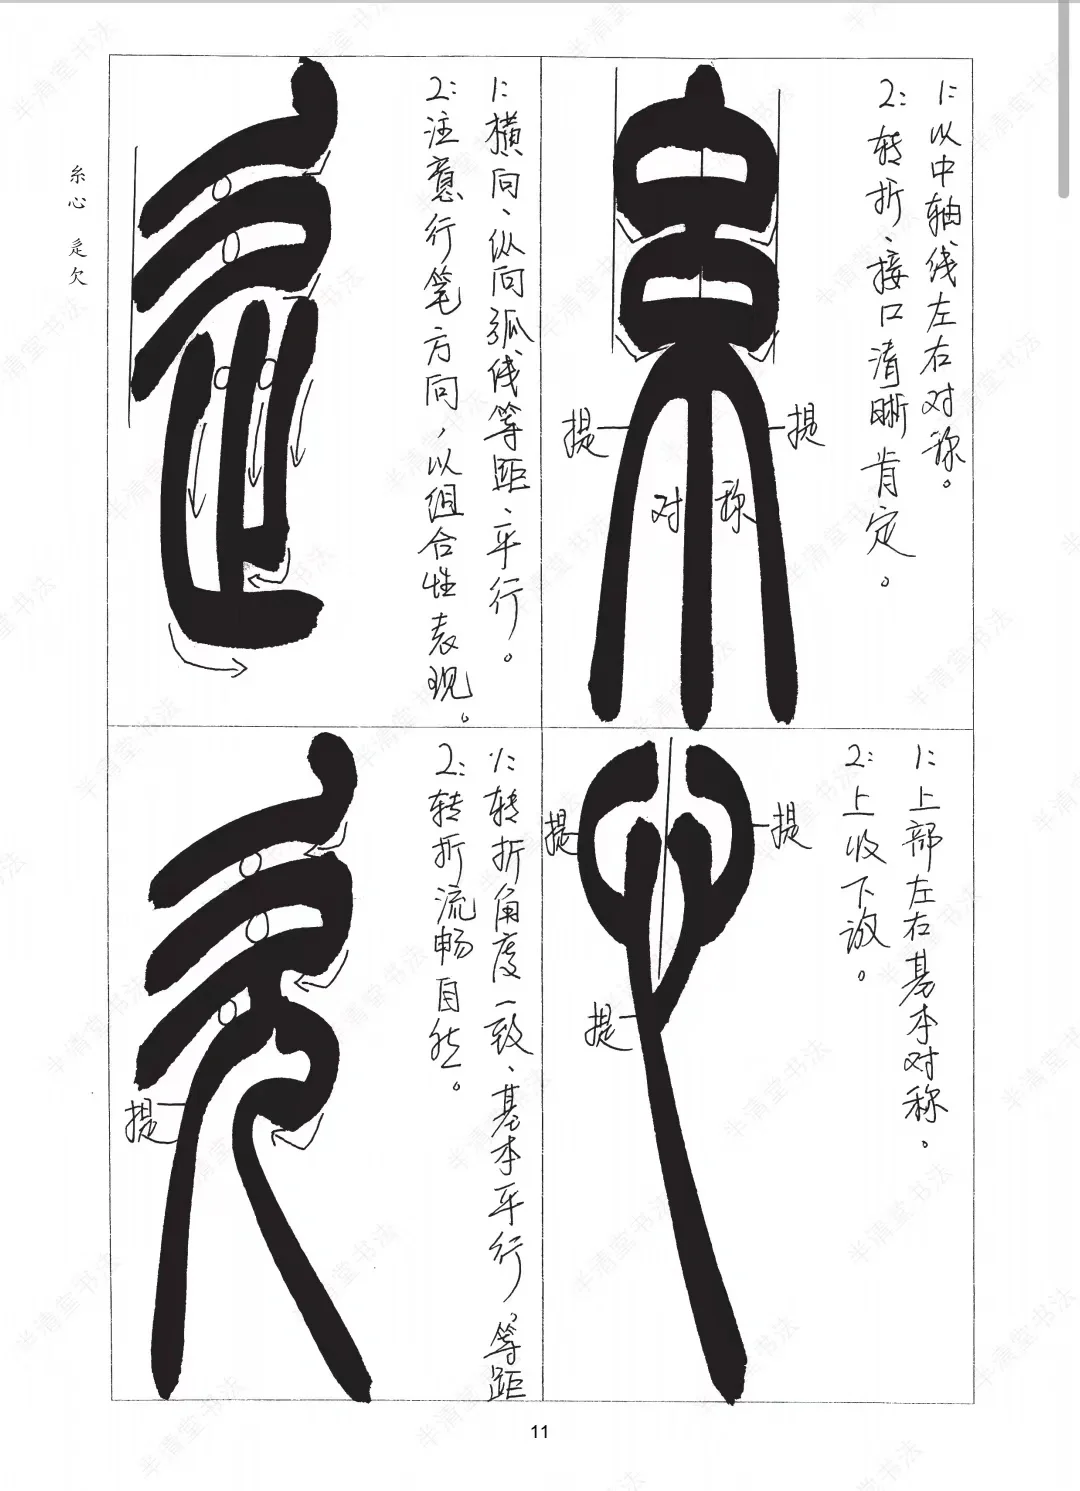 糸心 辵欠
1:以中轴线左右对称。
2:转折、接口清晰肯定。
提
提
对称
1:横向、纵向弧线等距、平行。
2:注意行笔方向,以组合性表现。
1:上部左右基本对称。
2:上收下放。
提
提
提
1:转折角度一致、基本平行。等距
2:转折流畅自然。
提
11
半清堂书法